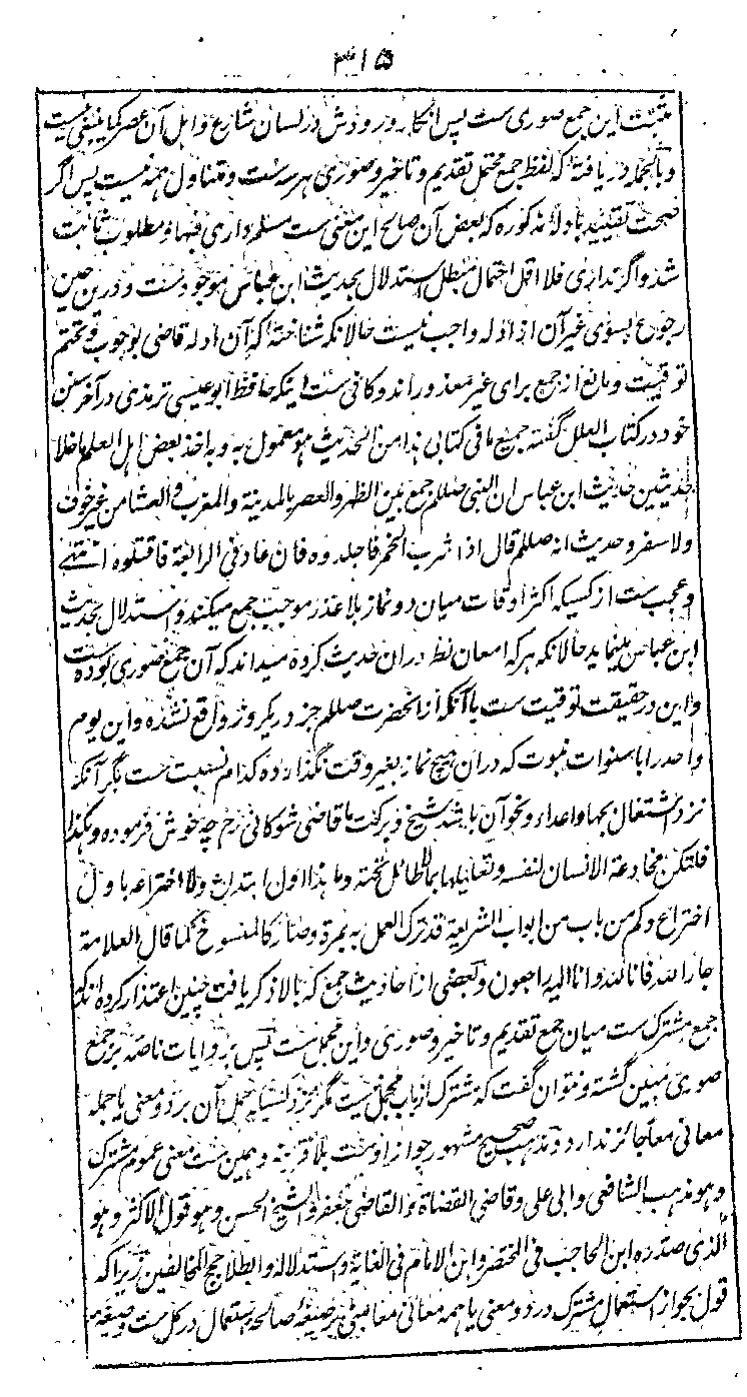 ۳۱۵
مثبت این جمع صوری ست پس انکار ورودش در لسان شارع واہل آن عصر کما ینبغی نیست
وبالجملہ دریافتۂ کہ لفظ جمع محتمل تقدیم وتاخیر وصوری ہر سہ ست ومتناول ہمہ نیست پس اگر
صحت تقیید بادلۂ مذکورہ کہ بعض آن صالح این معنی ست مسلم داری فبہا ومطلوب ثابت
شد واگر نداری فلا اقل احتمال مبطل استدلال بحدیث ابن عباس موجود ست ودرین حین
رجوع بسوی غیر آن از ادلہ واجب نیست حالانکہ شناختۂ کہ آن ادلہ قاضی بوجوب وتحتم
توقیت ومانع از جمع برای غیر معذور اند وکافی ست اینکہ حافظ ابو عیسی ترمذی در آخر سنن
خود در کتاب العلل گفتہ جمیع ما فی کتابی ہذا من الحدیث ہو معمول بہ وبہ اخذ بعض اہل العلم ما خلا
حدیثین حدیث ابن عباس ان النبی صللم جمع بین الظہر والعصر بالمدینة والمغرب والعشا من غیر خوف
ولا سفر وحدیث انہ صللم قال اذا شرب الخمر فاجلدوہ فان عاد فی الرابعة فاقتلوہ انتہے
وعجب ست از کسیکہ اکثر اوقات میان دو نماز بلا عذر موجب جمع میکند واستدلال بحدیث
ابن عباس مینماید حالانکہ ہر کہ امعان نظر دران حدیث کردہ میداند کہ آن جمع صوری بودہ ست
واین در حقیقت توقیت ست با آنکہ از آنحضرت صللم جز در یکروز واقع نشدہ واین یوم
واحد را با سنوات نبوت کہ دران ہیچ نماز بغیر وقت نگذاردہ کدام نسبت ست مگر آنکہ
نزد اشتغال بہا واعدار ونحو آن باشد شیخ وبرکت ما قاضی شوکانی رح چہ خوش فرمودہ وہکذا
فلتکن مخادعة الانسان لنفسہ وتعلیلہا بما لا طائل تحتہ وما ہذا اول ابتداث ولا اختراعہ باول
اختراع وکم من باب من ابواب الشریعة قد ترک العمل بہ بمرة وصار کالمنسوخ کما قال العلامة
جار اللہ فانا للہ وانا الیہ راجعون وبعضی از احادیث جمع کہ بالا ذکر یافت چنین اعتذار کردہ انکہ
جمع مشترک ست میان جمع تقدیم وتاخیر وصوری واین مجمل ست پس بروایات ناصہ بر جمع
صوری مبین گشتہ ونتوان گفت کہ مشترک از باب مجمل نیست مگر نزد کسیکہ حمل آن بر دو معنی یا جملہ
معانی معا جائز ندارد ومذہب صحیح مشہور جواز اوست بلا قرینہ وہمین ست معنی عموم مشترک
وہو مذہب الشافعی وابی علی وقاضی القضاة والقاضی جعفر والشیخ الحسن وہو قول الاکثر وہو
الذی صدرہ ابن الحاجب فی المختصر وابن الامام فی الغایة واستدلالہ وابطلا حجج المخالفین زیراکہ
قول بجواز استعمال مشترک در دو معنی یا ہمہ معانی معا مبنی بر صیغۂ صالحہ استعمال در کل ست وصیغۂ